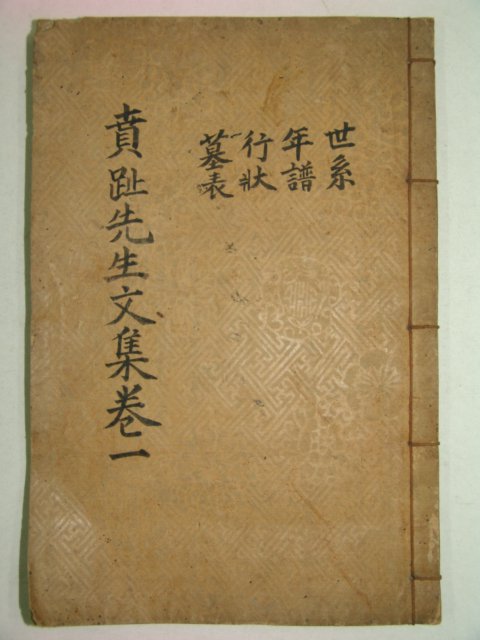 世系
年譜
行狀
墓表
賁趾先生文集卷一